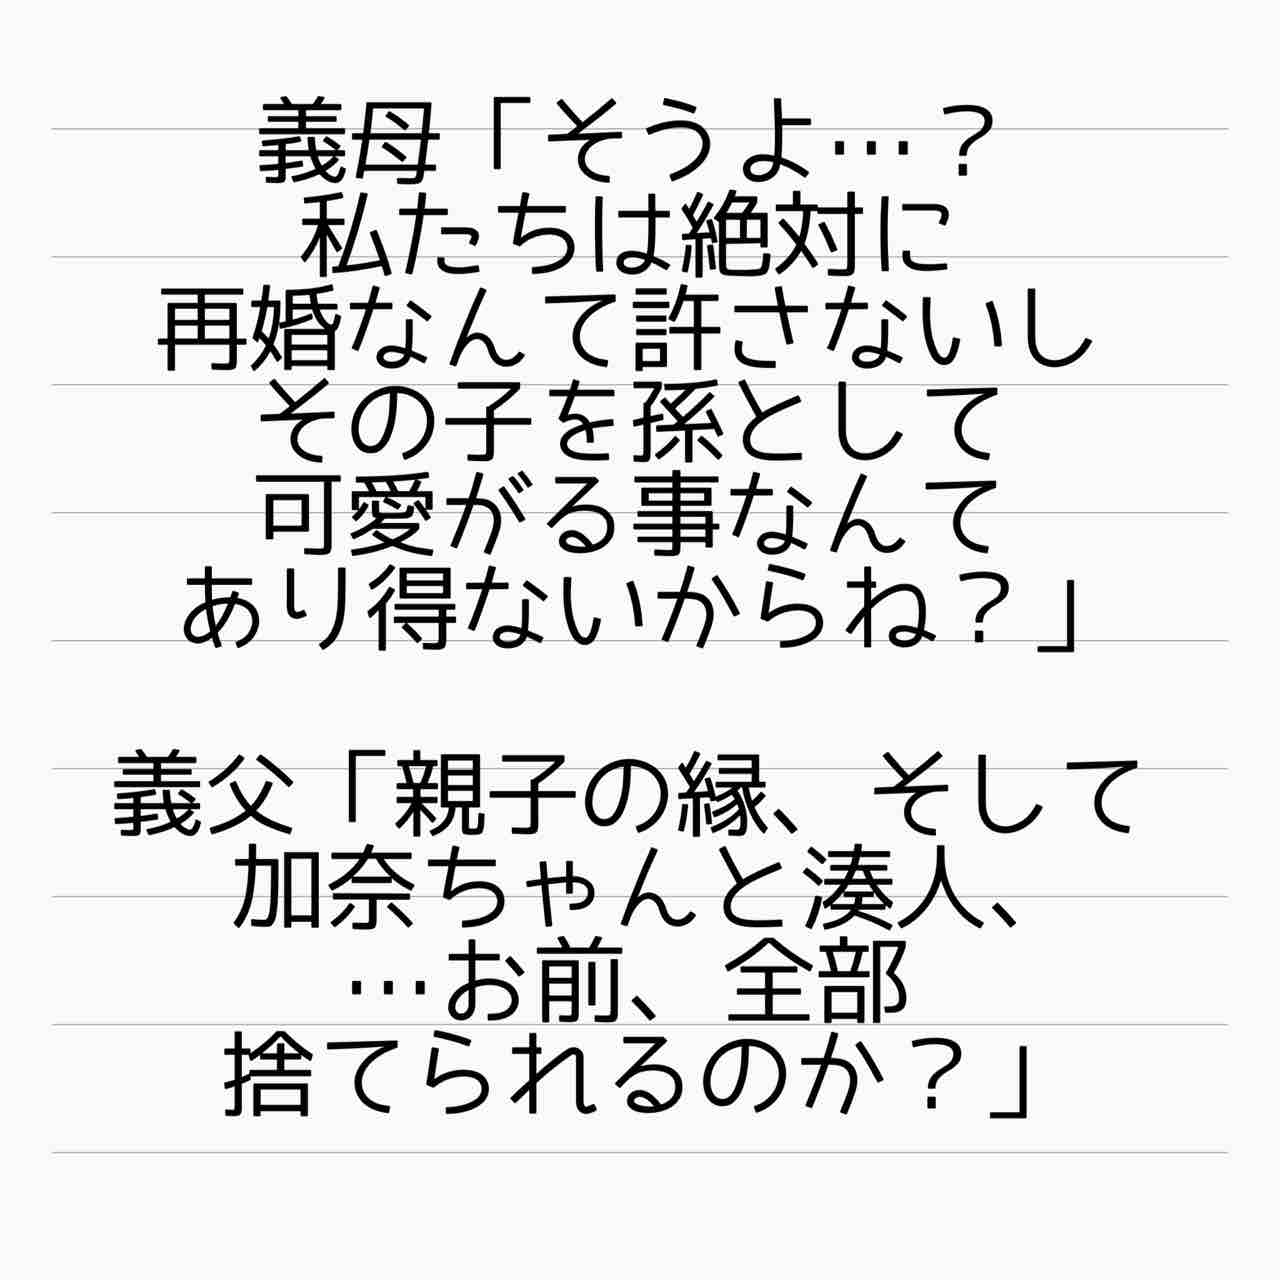 義母「そうよ…？
私たちは絶対に
再婚なんて許さないし
その子を孫として
可愛がる事なんて
あり得ないからね？」
義父「親子の縁、そして
加奈ちゃんと湊人、
…お前、全部
捨てられるのか？」